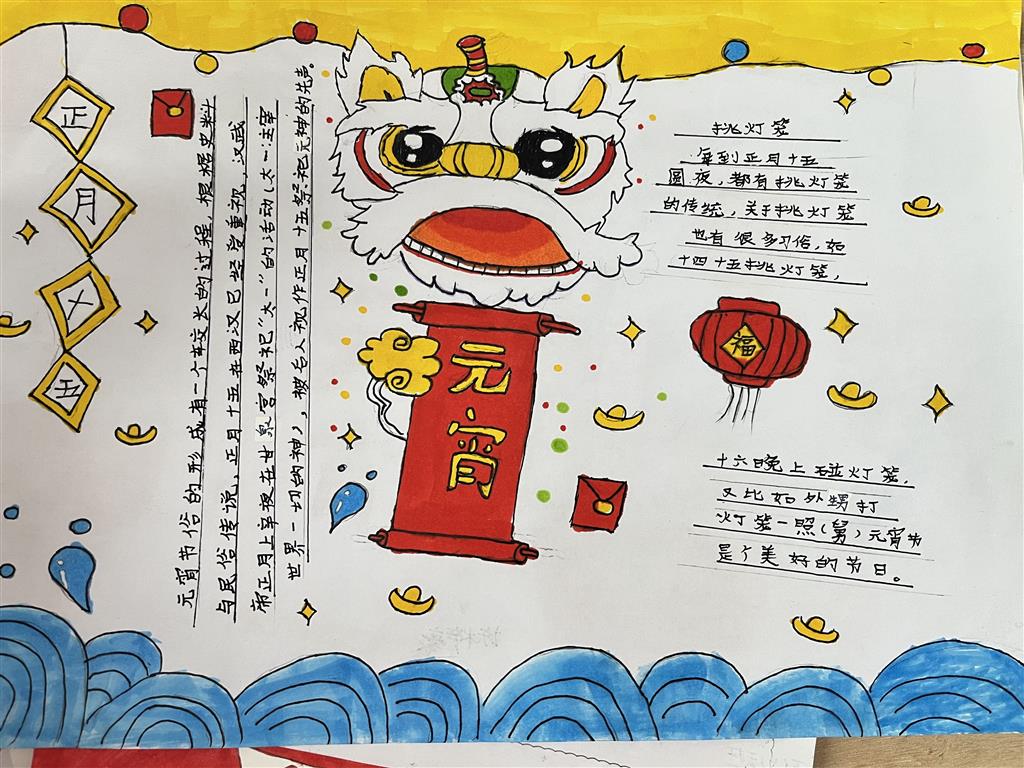 正月十五
元宵节俗的形成有一个较长的过程，根据史料
与民俗传说，正月十五在西汉已经受重视，汉武
帝正月上辛夜在甘泉宫祭祀“太一”的活动（太一：主宰
世界一切的神），被后人视作正月十五祭祀元神的先声。
元·宵
挑灯笼
每到正月十五
圆夜，都有挑灯笼
的传统，关于挑灯笼
也有很多习俗，如
十四十五挑灯笼，
福
十六晚上碰灯笼，
又比如外甥打
灯笼一照（舅）元宵节
是个美好的节日。